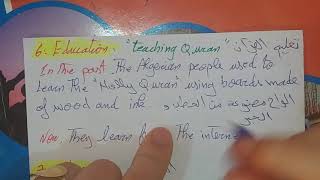 6. Education: "teaching Quran" تعليم القرآن
In the past The Algerian people used to
Learn The "Holly Quran" using boards made
of wood and ink ألواح مصنوعة من
الحبر
Now, They learn The interne